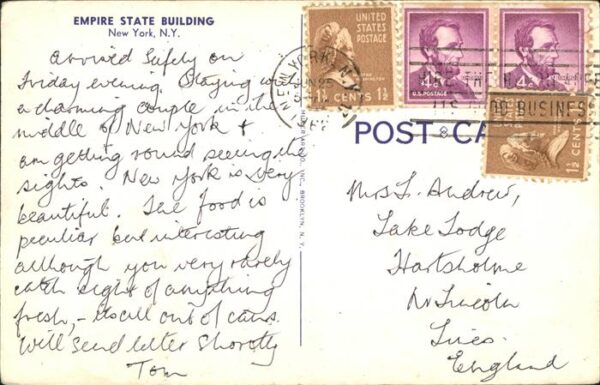 EMPIRE STATE BUILDING
New York, N.Y.
arrived safely on
Friday evening. Staying with
a charming couple in the
middle of New York &
am getting round seeing the
sights. New York is very
beautiful. The food is
peculiar but interesting
although you very rarely
catch sight of anything
fresh, - its all out of cans.
Will send letter shortly
Tom
UNITED
STATES
POSTAGE
1½ CENTS 1½
4¢
U.S. POSTAGE
4¢
NEW YORK, N.Y.
BUSINESS
1½ CENTS
POST CA
INC., BROOKLYN, N. Y.
Mrs L. Andrew,
Lake Lodge
Hartsholme
Nr Lincoln
Lincs.
England